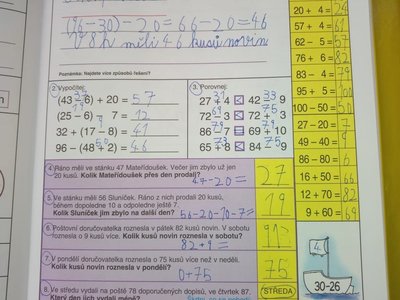 (96-30)-20=66-20=46
V 8 h měli 46 kusů novin
Poznámka: Najdete více způsobů řešení?
2. Vypočítej:
(43 - 6) + 20 = 57
(25 - 6) - 7 = 12
32 + (17 - 8) = 41
96 - (48 + 2) = 46
3. Porovnej:
27 + 4 < 42 - 9
72 - 3 < 72 + 3
86 - 7 = 69 + 10
65 + 8 < 84 - 9
4. Ráno měli ve stánku 47 Mateřídoušek. Večer jim zbylo už jen
20 kusů. Kolik Mateřídoušek přes den prodali?
47-20=
27
5. Ve stánku měli 56 Sluníček. Ráno z nich prodali 20 kusů,
během dopoledne 10 a odpoledne ještě 7.
Kolik Sluníček jim zbylo na další den?
56-20-10-7=
19
6. Poštovní doručovatelka roznesla v pátek 82 kusů novin. V sobotu
roznesla o 9 kusů více. Kolik kusů novin roznesla v sobotu?
82+9=
7. V pondělí roznesla doručovatelka o 75 kusů více než v neděli.
Kolik kusů novin roznesla v pondělí?
0+75
75
8. Ve středu vydali na poště 78 doporučených dopisů, ve čtvrtek 87.
Který den jich vydali méně?
STŘEDA
20 + 4 = 24
57 + 4 = 61
62 - 5 = 57
76 + 6 = 82
83 - 4 = 79
95 + 5 = 100
100 - 50 = 50
27 - 20 =
49 - 40 = 9
86 - 80 = 6
16 + 50 = 66
12 + 70 = 82
9 + 60 = 69
4.
30-26